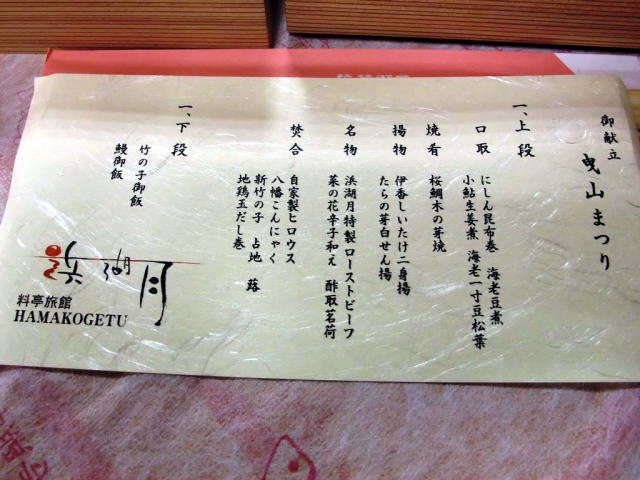 御献立
曳山まつり
一、上段
口取
にしん昆布巻 海老豆煮
小鮎生姜煮 海老一寸豆松葉
焼肴
桜鯛木の芽焼
揚物
伊香しいたけ二身揚
たらの芽白せん揚
名物
浜湖月特製ローストビーフ
菜の花辛子和え 酢取茗荷
焚合
自家製ヒロウス
八幡こんにゃく
新竹の子 占地 蕗
地鶏玉だし巻
一、下段
竹の子御飯
鰻御飯
浜湖月
料亭旅館
HAMAKOGETU